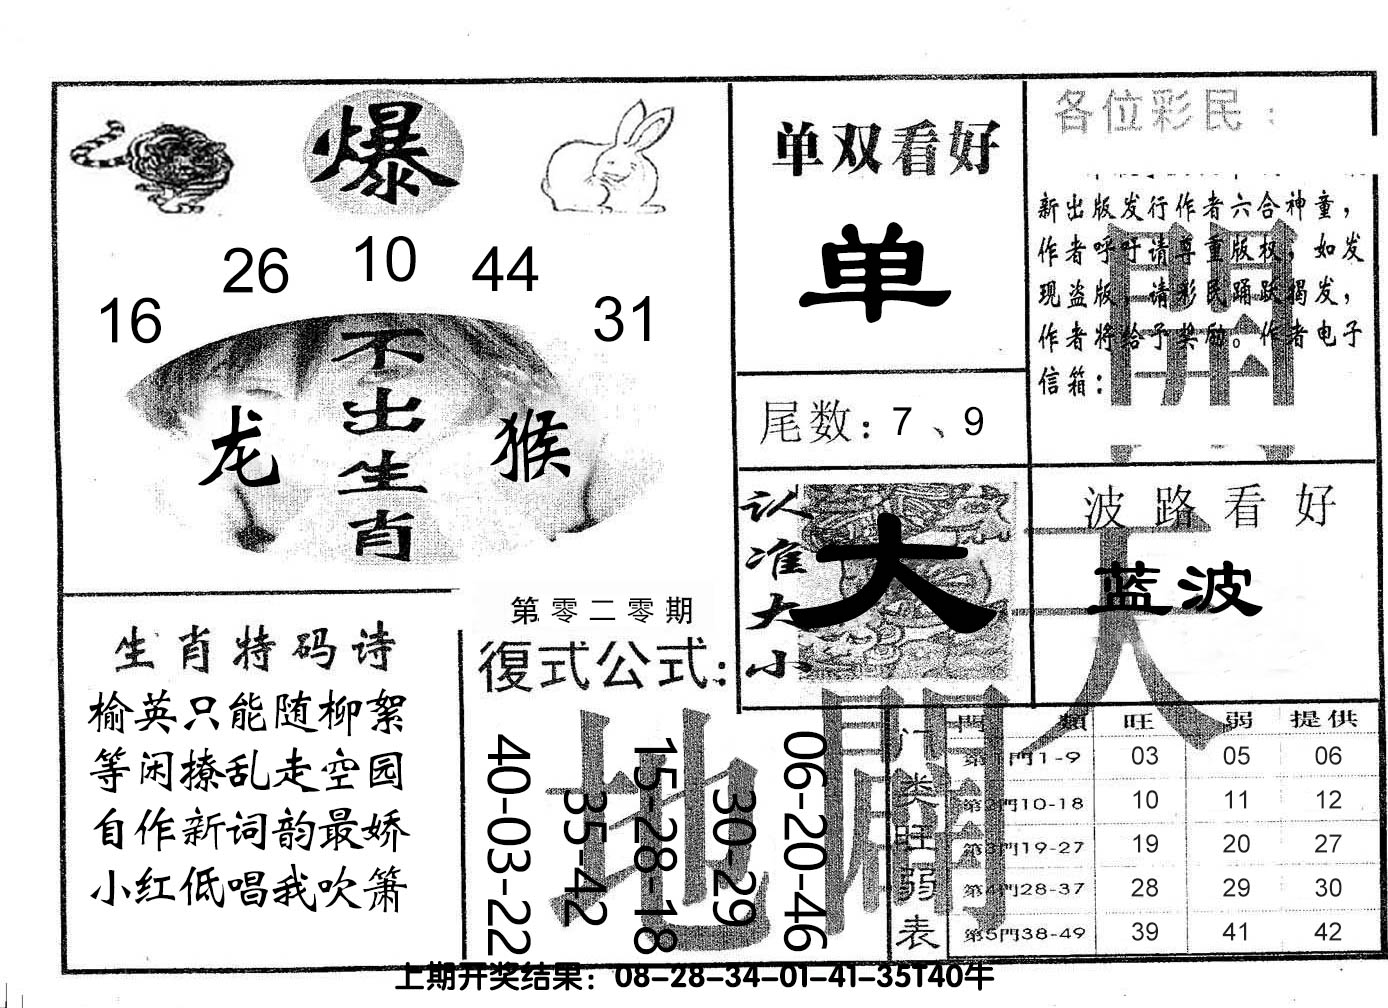 爆
16 26 10 44 31
不出生肖
龙 猴
生肖特码诗
榆英只能随柳絮
等闲撩乱走空园
自作新词韵最娇
小红低唱我吹箫
第零二零期
復式公式：
40-03-22
35-42
15-28-18
30-29
06-20-46
单双看好
单
尾数：7、9
认准大小
大
各位彩民：
新出版发行作者六合神童，
作者呼吁请尊重版权，如发
现盗版，请彩民踊跃揭发，
作者将给予奖励。作者电子
信箱：
波路看好
蓝波
天
開
地
門类旺弱表
門類 旺 弱 提供
第1門1-9 03 05 06
第2門10-18 10 11 12
第3門19-27 19 20 27
第4門28-37 28 29 30
第5門38-49 39 41 42
上期开奖结果：08-28-34-01-41-35T40牛